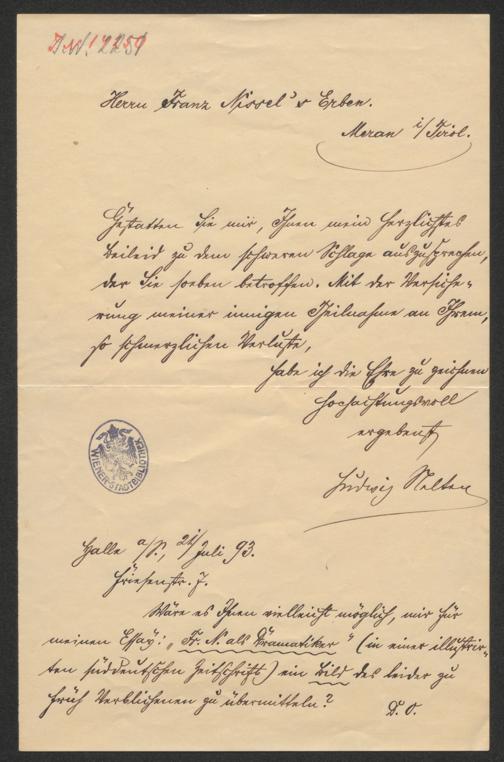 Herrn Franz Nissel's Erben.
Meran i/Tirol.
Gestatten Sie mir, Ihnen mein herzlichstes
Beileid zu dem schweren Schlage auszusprechen,
der Sie soeben betroffen. Mit der Versiche-
rung meiner innigen Theilnahme an Ihrem,
so schmerzlichen Verluste,
habe ich die Ehre zu zeichnen
Hochachtungsvoll
ergebenst
Ludwig Nelten
WIENER STADTBIBLIOTHEK
Halle a/S., Juli 93.
Friesenstr. 7.
Wäre es Ihnen vielleicht möglich, mir für
meinen Essay: „Fr. N. als Dramatiker" (in einer illustrir-
ten süddeutschen Zeitschrift) ein Bild des leider zu
früh Verblichenen zu übermitteln?
D. O.